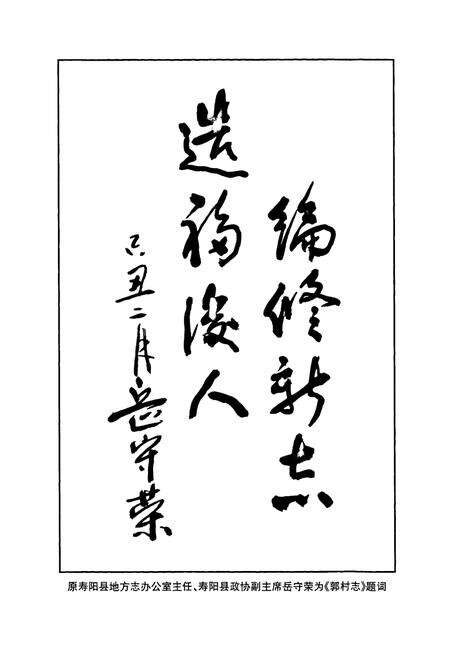 编修新志
造福后人
己丑二月岳守荣
原寿阳县地方志办公室主任、寿阳县政协副主席岳守荣为《郭村志》题词